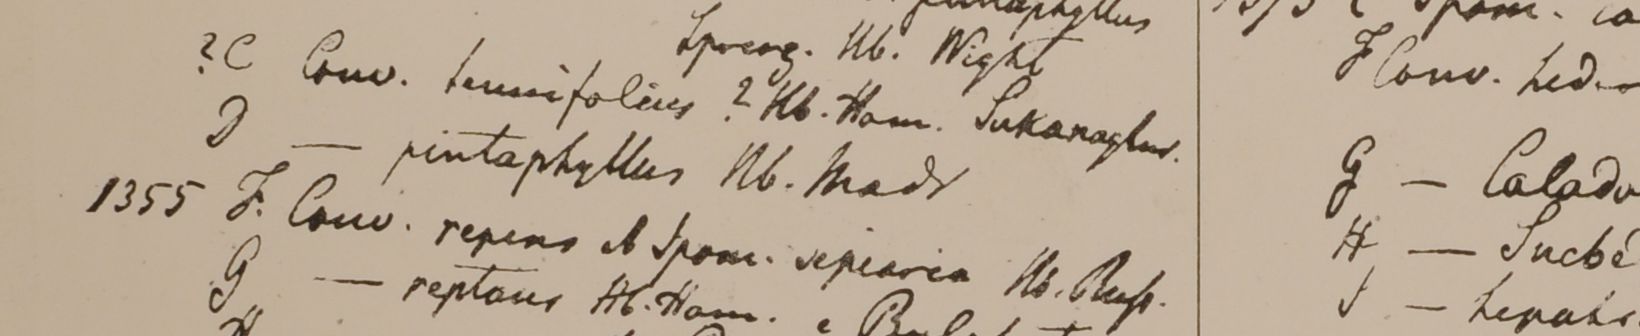 pintaphyllus
Spreng. Hb. Wight
? C Conv. tenuifolius ? Hb. Ham. Sukanaghur.
D — pintaphyllus Hb. Madr
1355 F. Conv. repens et Ipom. sepiaria Hb. Russ.
G — reptans Hb. Ham. e
H
Ipom.
F Conv. hed
G — Calado
H — Sucbé
J — hepati